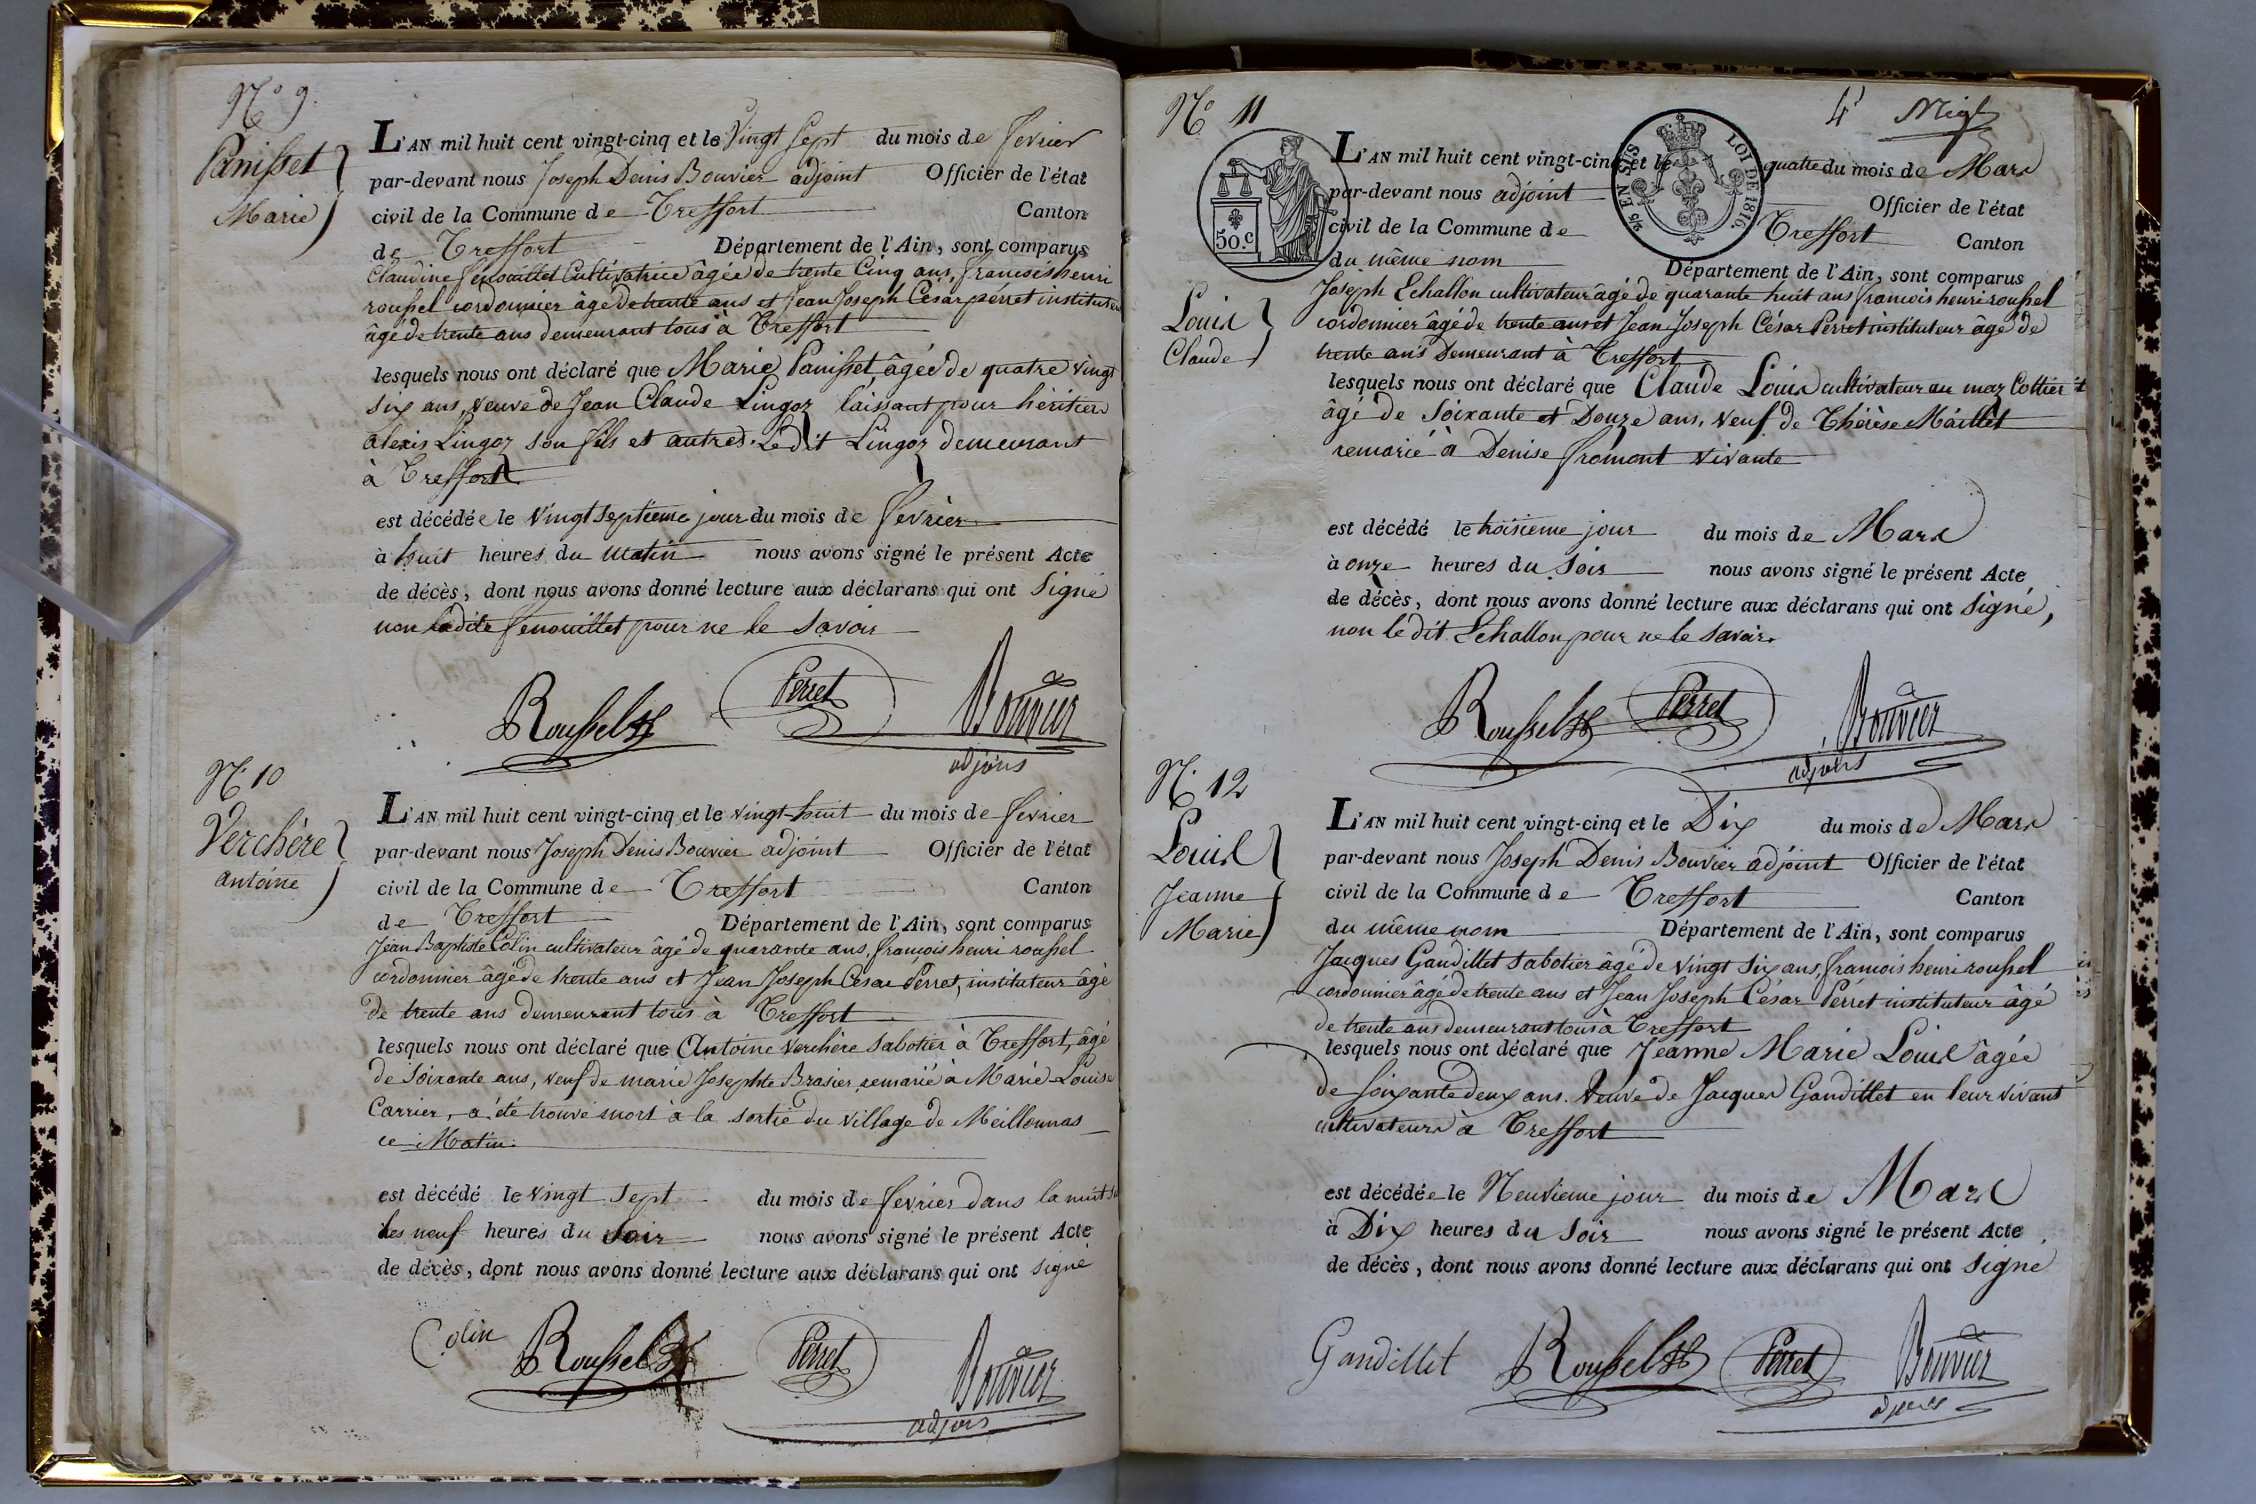 N.° 9.
Panisset
Marie
L'AN mil huit cent vingt-cinq et le Vingt Sept du mois de fevrier
par-devant nous Joseph Denis Bouvier adjoint Officier de l'état
civil de la Commune de Treffort Canton
de Treffort Département de l'Ain, sont comparus
Claudine fenouillet Cultivatrice âgée de trente Cinq ans, francois henri
roussel cordonnier âgé de trente ans et Jean Joseph César perret instituteur
âgé de trente ans demeurant tous à Treffort
lesquels nous ont déclaré que Marie Panisset, âgée de quatre vingt
six ans, veuve de Jean Claude Lingoz laissant pour héritiers
alexis Lingoz son fils et autres. Ledit Lingoz demeurant
à Treffort
est décédée le vingt septieme jour du mois de fevrier
à huit heures du matin nous avons signé le présent Acte
de décès, dont nous avons donné lecture aux déclarans qui ont signé
non ladite fenouillet pour ne le savoir
Roussel Perret Bouvier
adjoint
N. 10
Verchère
antoine
L'AN mil huit cent vingt-cinq et le vingt-huit du mois de fevrier
par-devant nous Joseph Denis Bouvier adjoint Officier de l'état
civil de la Commune de Treffort Canton
de Treffort Département de l'Ain, sont comparus
Jean Baptiste Colin cultivateur âgé de quarante ans, françois henri roussel
cordonnier âgé de trente ans et Jean Joseph César Perret, instituteur âgé
de trente ans demeurant tous à Treffort
lesquels nous ont déclaré que Antoine Verchère sabotier à Treffort, âgé
de soixante ans, veuf de marie Josephte Brasier remarié à Marie Louise
Carrier, a été trouvé mort à la sortie du village de Meillonnas
ce Matin.
est décédé le vingt sept du mois de fevrier dans la nuit
les neuf heures du soir nous avons signé le présent Acte
de décès, dont nous avons donné lecture aux déclarans qui ont signé
Colin Roussel Perret Bouvier
adjoint
N.° 11
4
50.c
EN SUS
LOI DE 1816.
Louis
Claude
L'AN mil huit cent vingt-cinq et le quatre du mois de Mars
par-devant nous adjoint Officier de l'état
civil de la Commune de Treffort Canton
du même nom Département de l'Ain, sont comparus
Joseph Echallon cultivateur âgé de quarante huit ans francois henri roussel
cordonnier âgé de trente ans et Jean Joseph César Perret instituteur âgé de
trente ans Demeurant à Treffort
lesquels nous ont déclaré que Claude Louis cultivateur au maz Cottier
âgé de soixante et Douze ans, veuf de Thérèse Maillet
remarié à Denise fromont vivante
est décédé le troisieme jour du mois de Mars
à onze heures du soir nous avons signé le présent Acte
de décès, dont nous avons donné lecture aux déclarans qui ont signé,
non le dit Echallon pour ne le savoir.
Roussel Perret Bouvier
adjoint
N. 12
Louis
Jeanne
Marie
L'AN mil huit cent vingt-cinq et le Dix du mois de Mars
par-devant nous Joseph Denis Bouvier adjoint Officier de l'état
civil de la Commune de Treffort Canton
du même nom Département de l'Ain, sont comparus
Jacques Gandillet sabotier âgé de vingt six ans, francois henri roussel
cordonnier âgé de trente ans et Jean Joseph César Perret instituteur âgé
de trente ans demeurant tous à Treffort
lesquels nous ont déclaré que Jeanne Marie Louis âgée
de soixante deux ans. Veuve de Jacques Gandillet en leur vivant
cultivateurs à Treffort
est décédée le Neuvieme jour du mois de Mars
à Dix heures du soir nous avons signé le présent Acte
de décès, dont nous avons donné lecture aux déclarans qui ont signé
Gandillet Roussel Perret Bouvier
adjoint